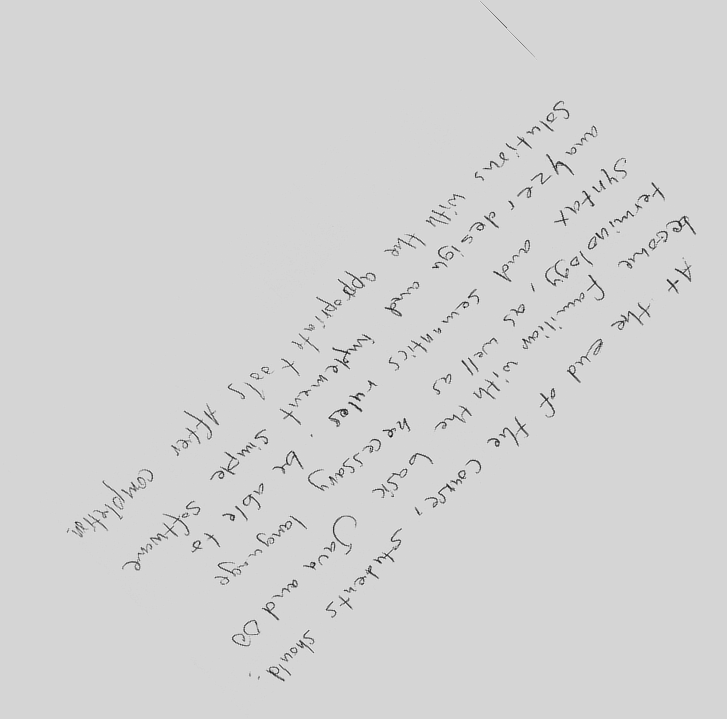 At the end of the course, students should:
become familiar with the basic Java and OO
terminology, as well as necessary language
syntax and semantics rules. be able to
anayzer design and implement simple software
solutions with the appropriate tools After completion: